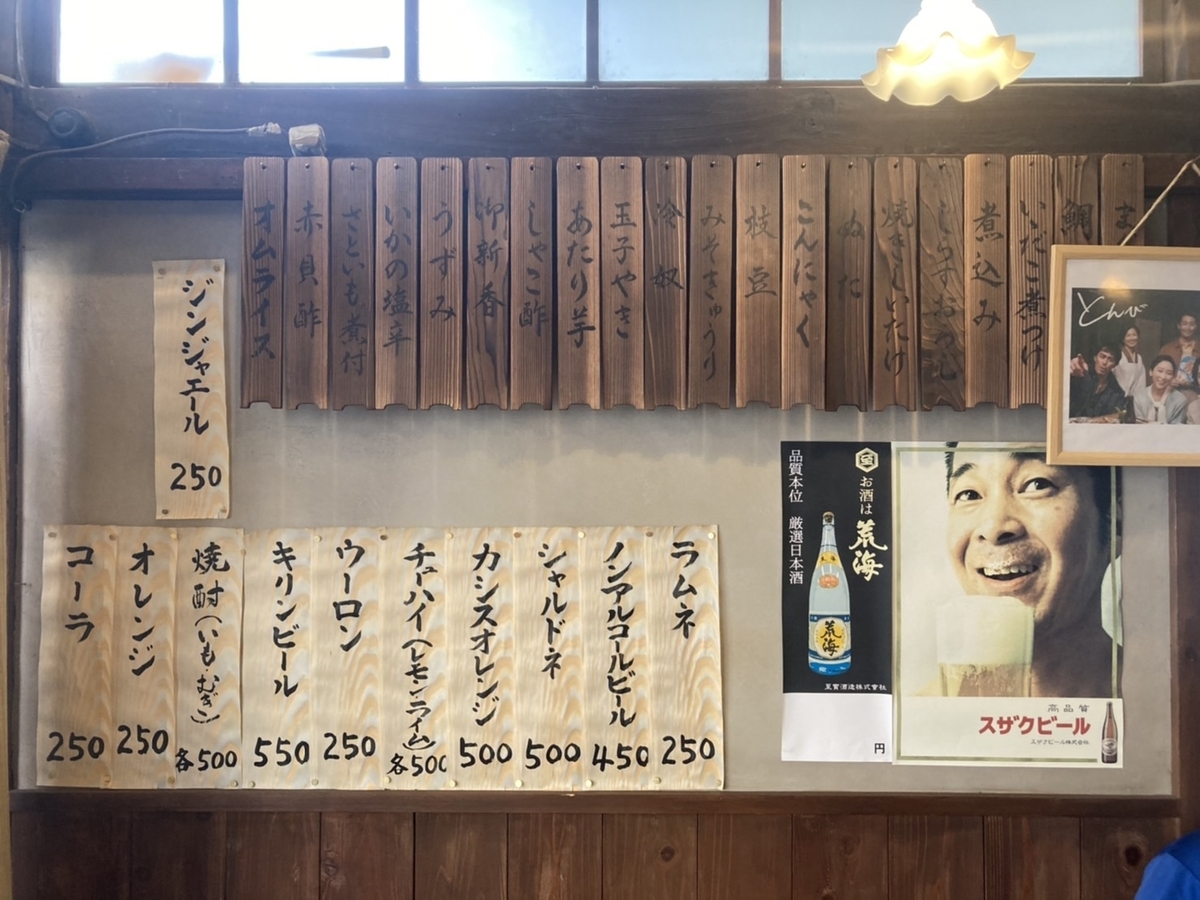 ま
鯛
いだこ煮つけ
煮込み
しらすおろし
焼きしいたけ
ぬた
こんにゃく
枝豆
みそきゅうり
冷奴
玉子やき
あたり芋
しゃこ酢
御新香
うずみ
いかの塩辛
さといも煮付
赤貝酢
オムライス
ジンジャエール
250
ラムネ
250
ノンアルコールビール
450
シャルドネ
500
カシスオレンジ
500
チューハイ(レモン・ライム)
各500
ウーロン
250
キリンビール
550
焼酎(いも・むぎ)
各500
オレンジ
250
コーラ
250
お酒は
荒海
品質本位 厳選日本酒
荒海
円
高品質
スザクビール
スザクビール株式会社
とんび